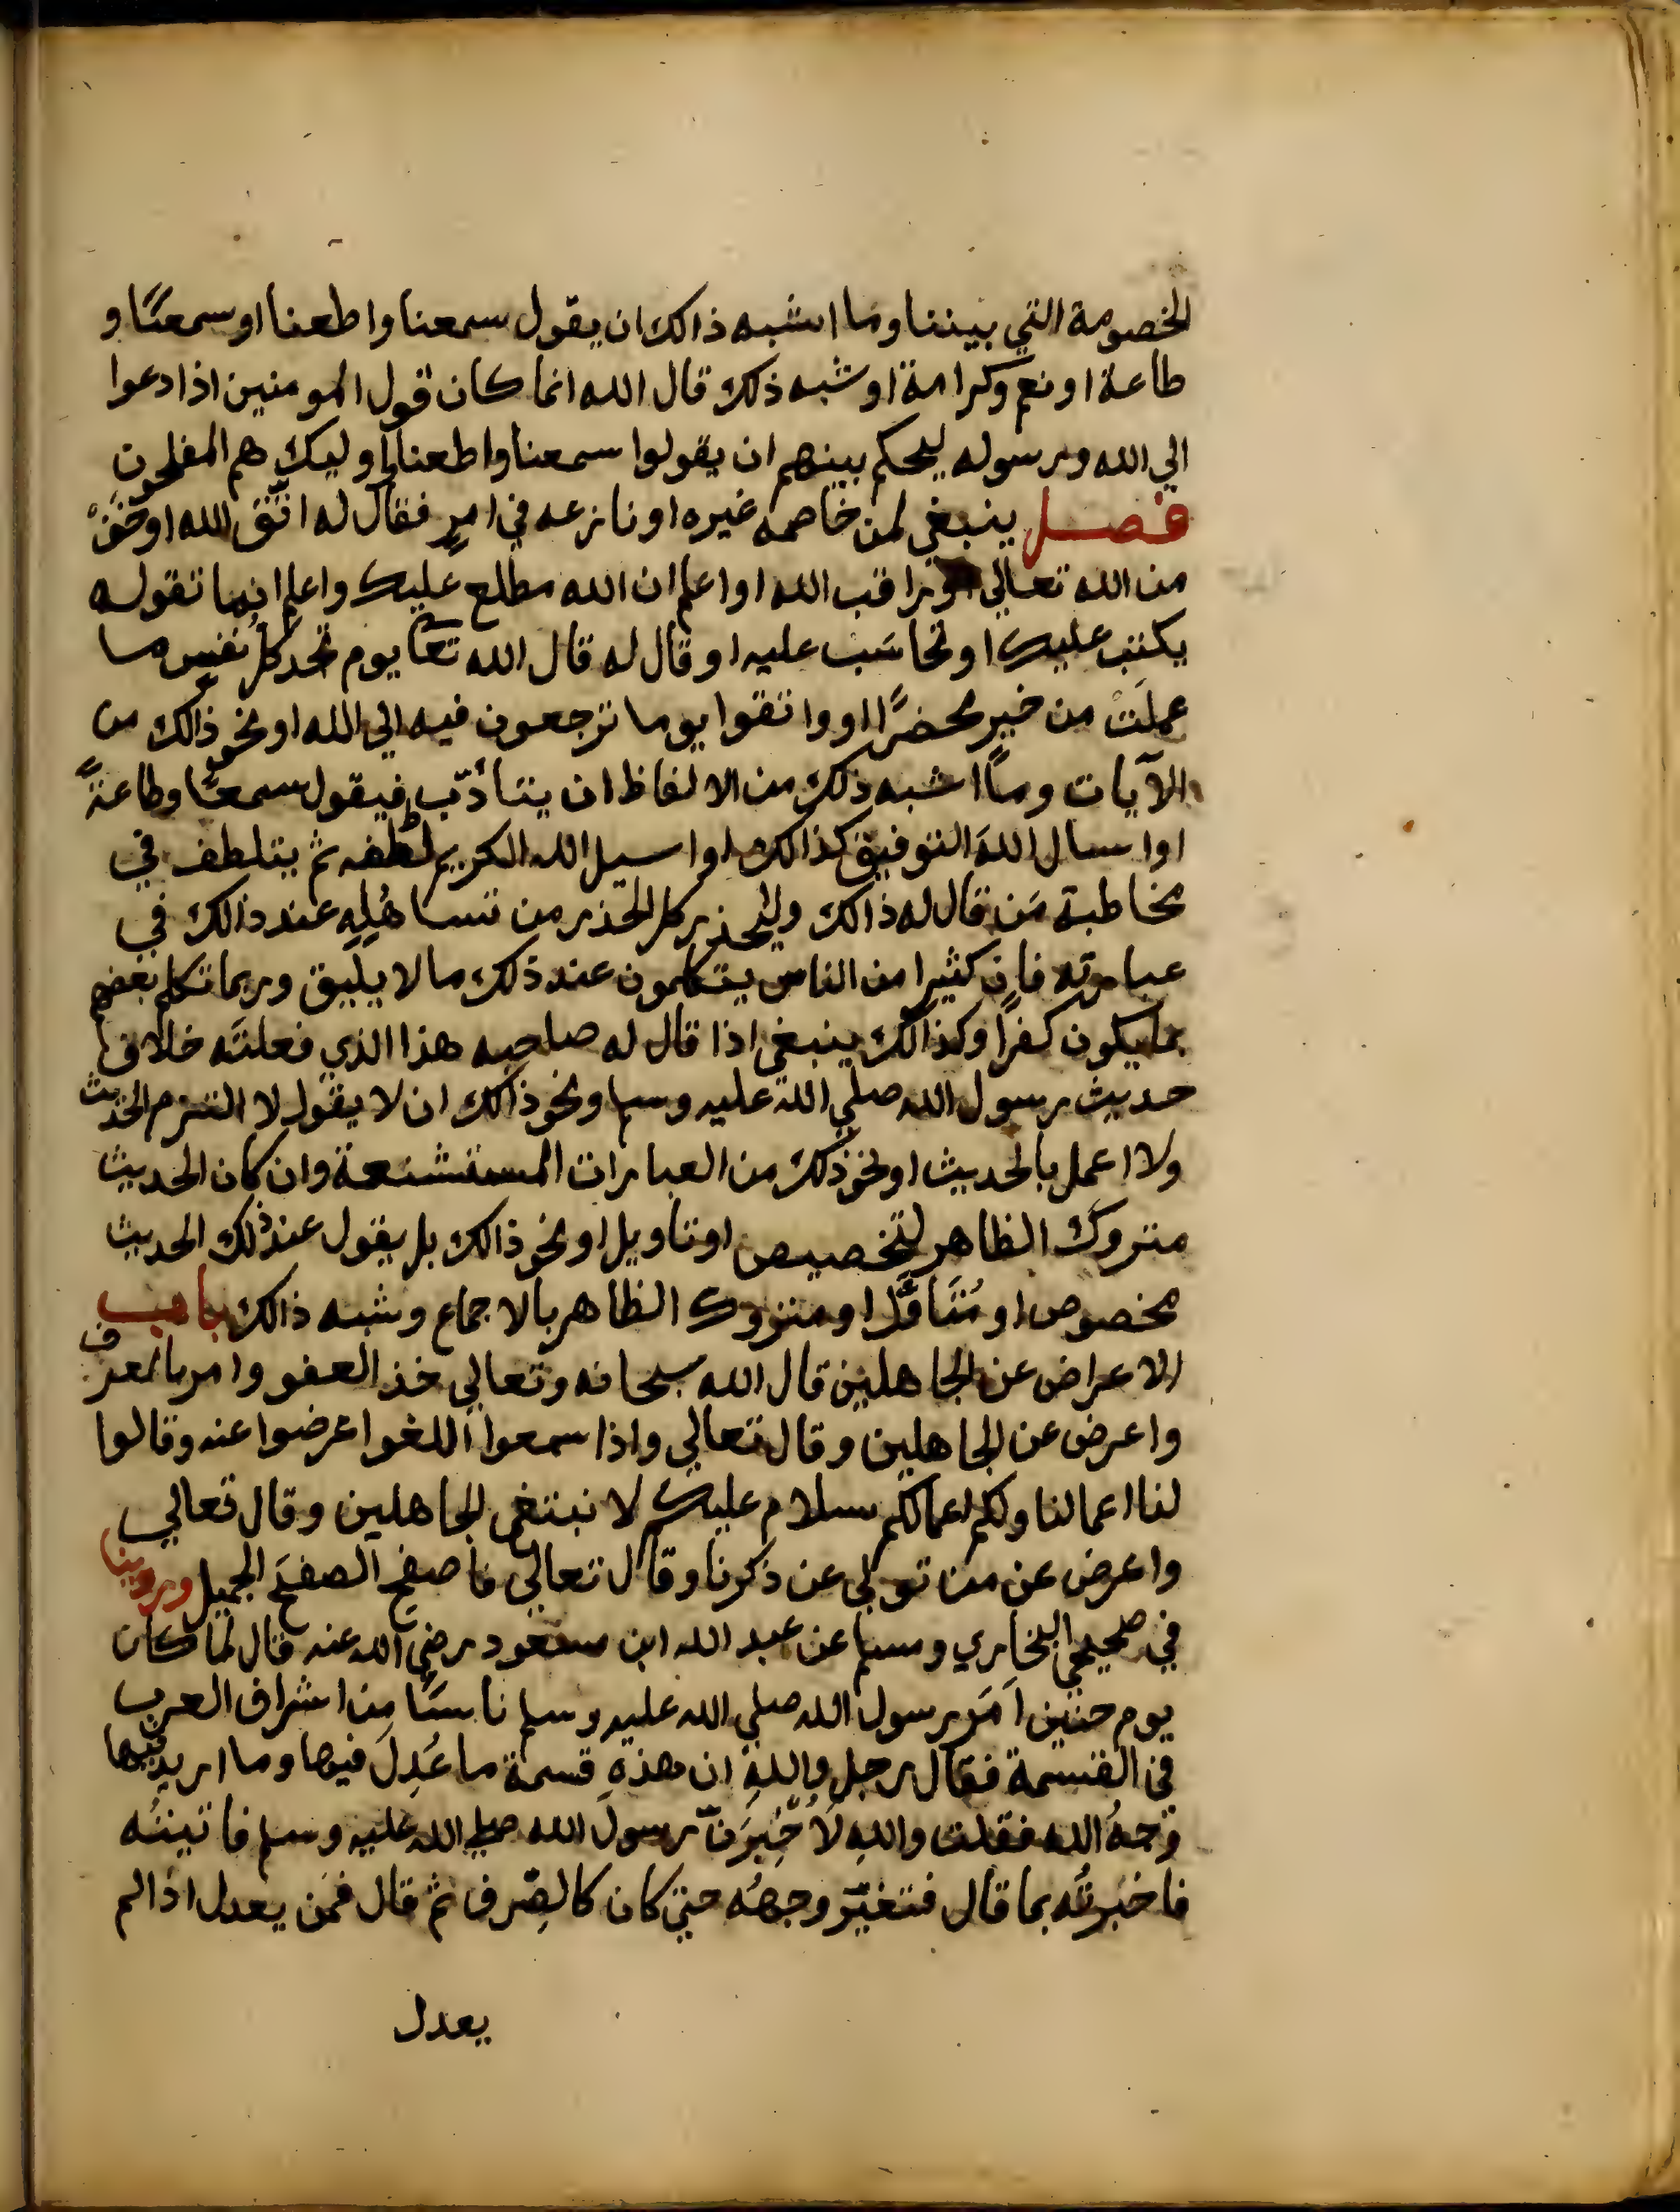 الخصومة التي بيننا وما اشبه ذالك ان يقول سمعنا واطعنا او سمعًا و
طاعة او نعم وكرامة او شبه ذلك قال الله انما كان قول المومنين اذا دعوا
الي الله ورسوله ليحكم بينهم ان يقولوا سمعنا واطعنا واوليك هم المفلحون
فصل ينبغي لمن خاصمه غيره او نازعه في امرٍ فقال له اتّق الله او خَفْ
من الله تعالي او راقب الله او اعلم ان الله مطلع عليك واعلم ان ما تقوله
يكتب عليك او تحاسَب عليه او قال له قال الله تعا يوم تجد كل نفس ما
عملَتْ من خير محضرًا او واتقوا يوما ترجعون فيه الي الله او نحو ذالك من
الآيات وما اشبه ذلك من الالفاظ ان يتأدّب فيقول سمعًا وطاعةً
او اسال اللهَ التوفيق كذالك او اسيل الله الكريم لطفه ثم يتلطف في
مخاطبة مَن قال له ذالك وليحذر كل الحذر من تساهُلِهِ عند ذالك في
عبارته فان كثيرا من الناس يتكلمون عند ذلك ما لا يليق وربما تكلم بعضهم
بما يكون كفرًا وكذالك ينبغي اذا قال له صاحبه هذا الذي فعلتَه خلاف
حديث رسول الله صلي الله عليه وسلم ونحو ذالك ان لا يقول لا التزم الحديث
ولا اعمل بالحديث او نحو ذلك من العبارات المستشنعة وان كان الحديث
متروك الظاهر لتخصيص او تاويل او نحو ذالك بل يقول عند ذلك الحديث
مخصوص او مُتَاَوَّل او متروك الظاهر بالاجماع وشبه ذالك باب
الاعراض عن الجاهلين قال الله سبحانه وتعالي خذ العفو وامر بالعرف
واعرض عن الجاهلين وقال تعالي واذا سمعوا اللغو اعرضوا عنه وقالوا
لنا اعمالنا ولكم اعمالكم سلام عليكم لا نبتغي الجاهلين وقال تعالي
واعرض عن من تولي عن ذكرنا وقال تعالي فاصفح الصفحَ الجميل وروينا
في صحيحي البخاري ومسلم عن عبد الله ابن مسعود رضي الله عنه قال لما كان
يوم حنين اَمَر رسول الله صلي الله عليه وسلم ناسًا مِن اشراف العرب
في القسمة فقال رجل واللهِ ان هذهِ قسمة ما عُدِلَ فيها وما اريد فيها
وَجهُ الله فقلت واللهِ لَاُخْبِرَنَّ رسول الله صلي الله عليه وسلم فاتيتُه
فاخبرتُه بما قال فتغيّر وجهُه حتي كان كالصِّرف ثم قال فمَن يعدل اذا لم
يعدل